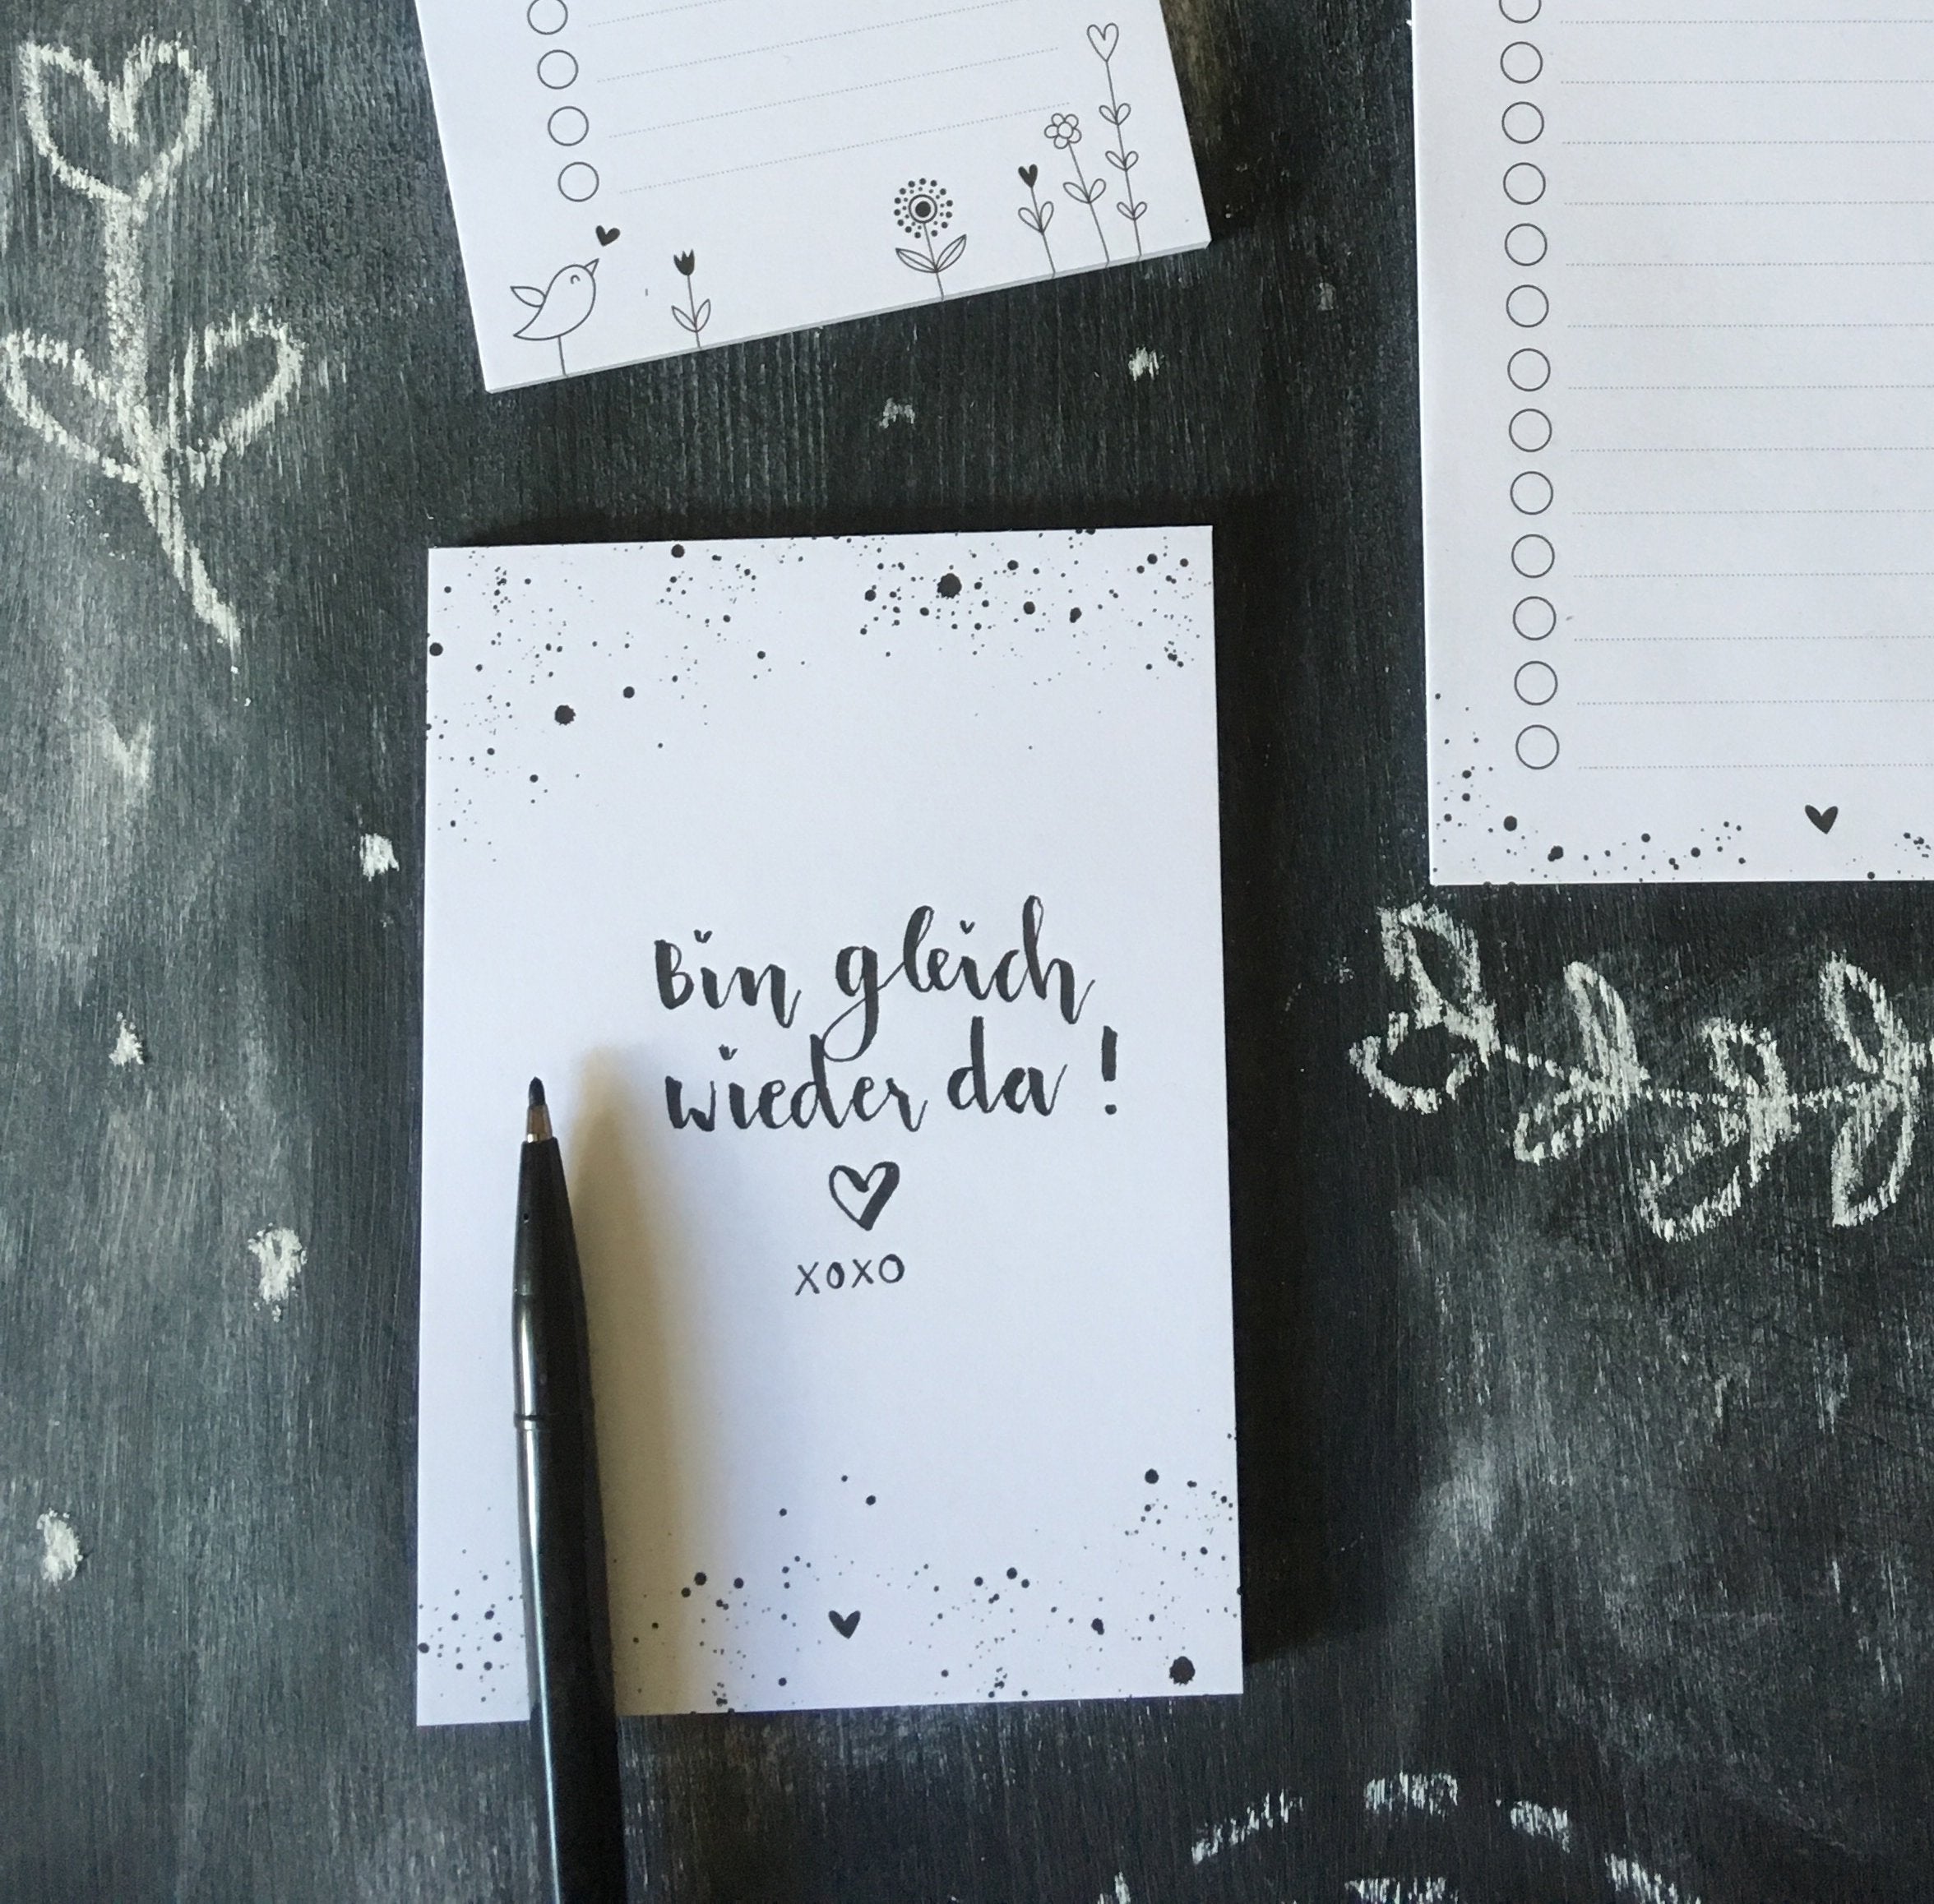 Bin gleich
wieder da!
xoxo